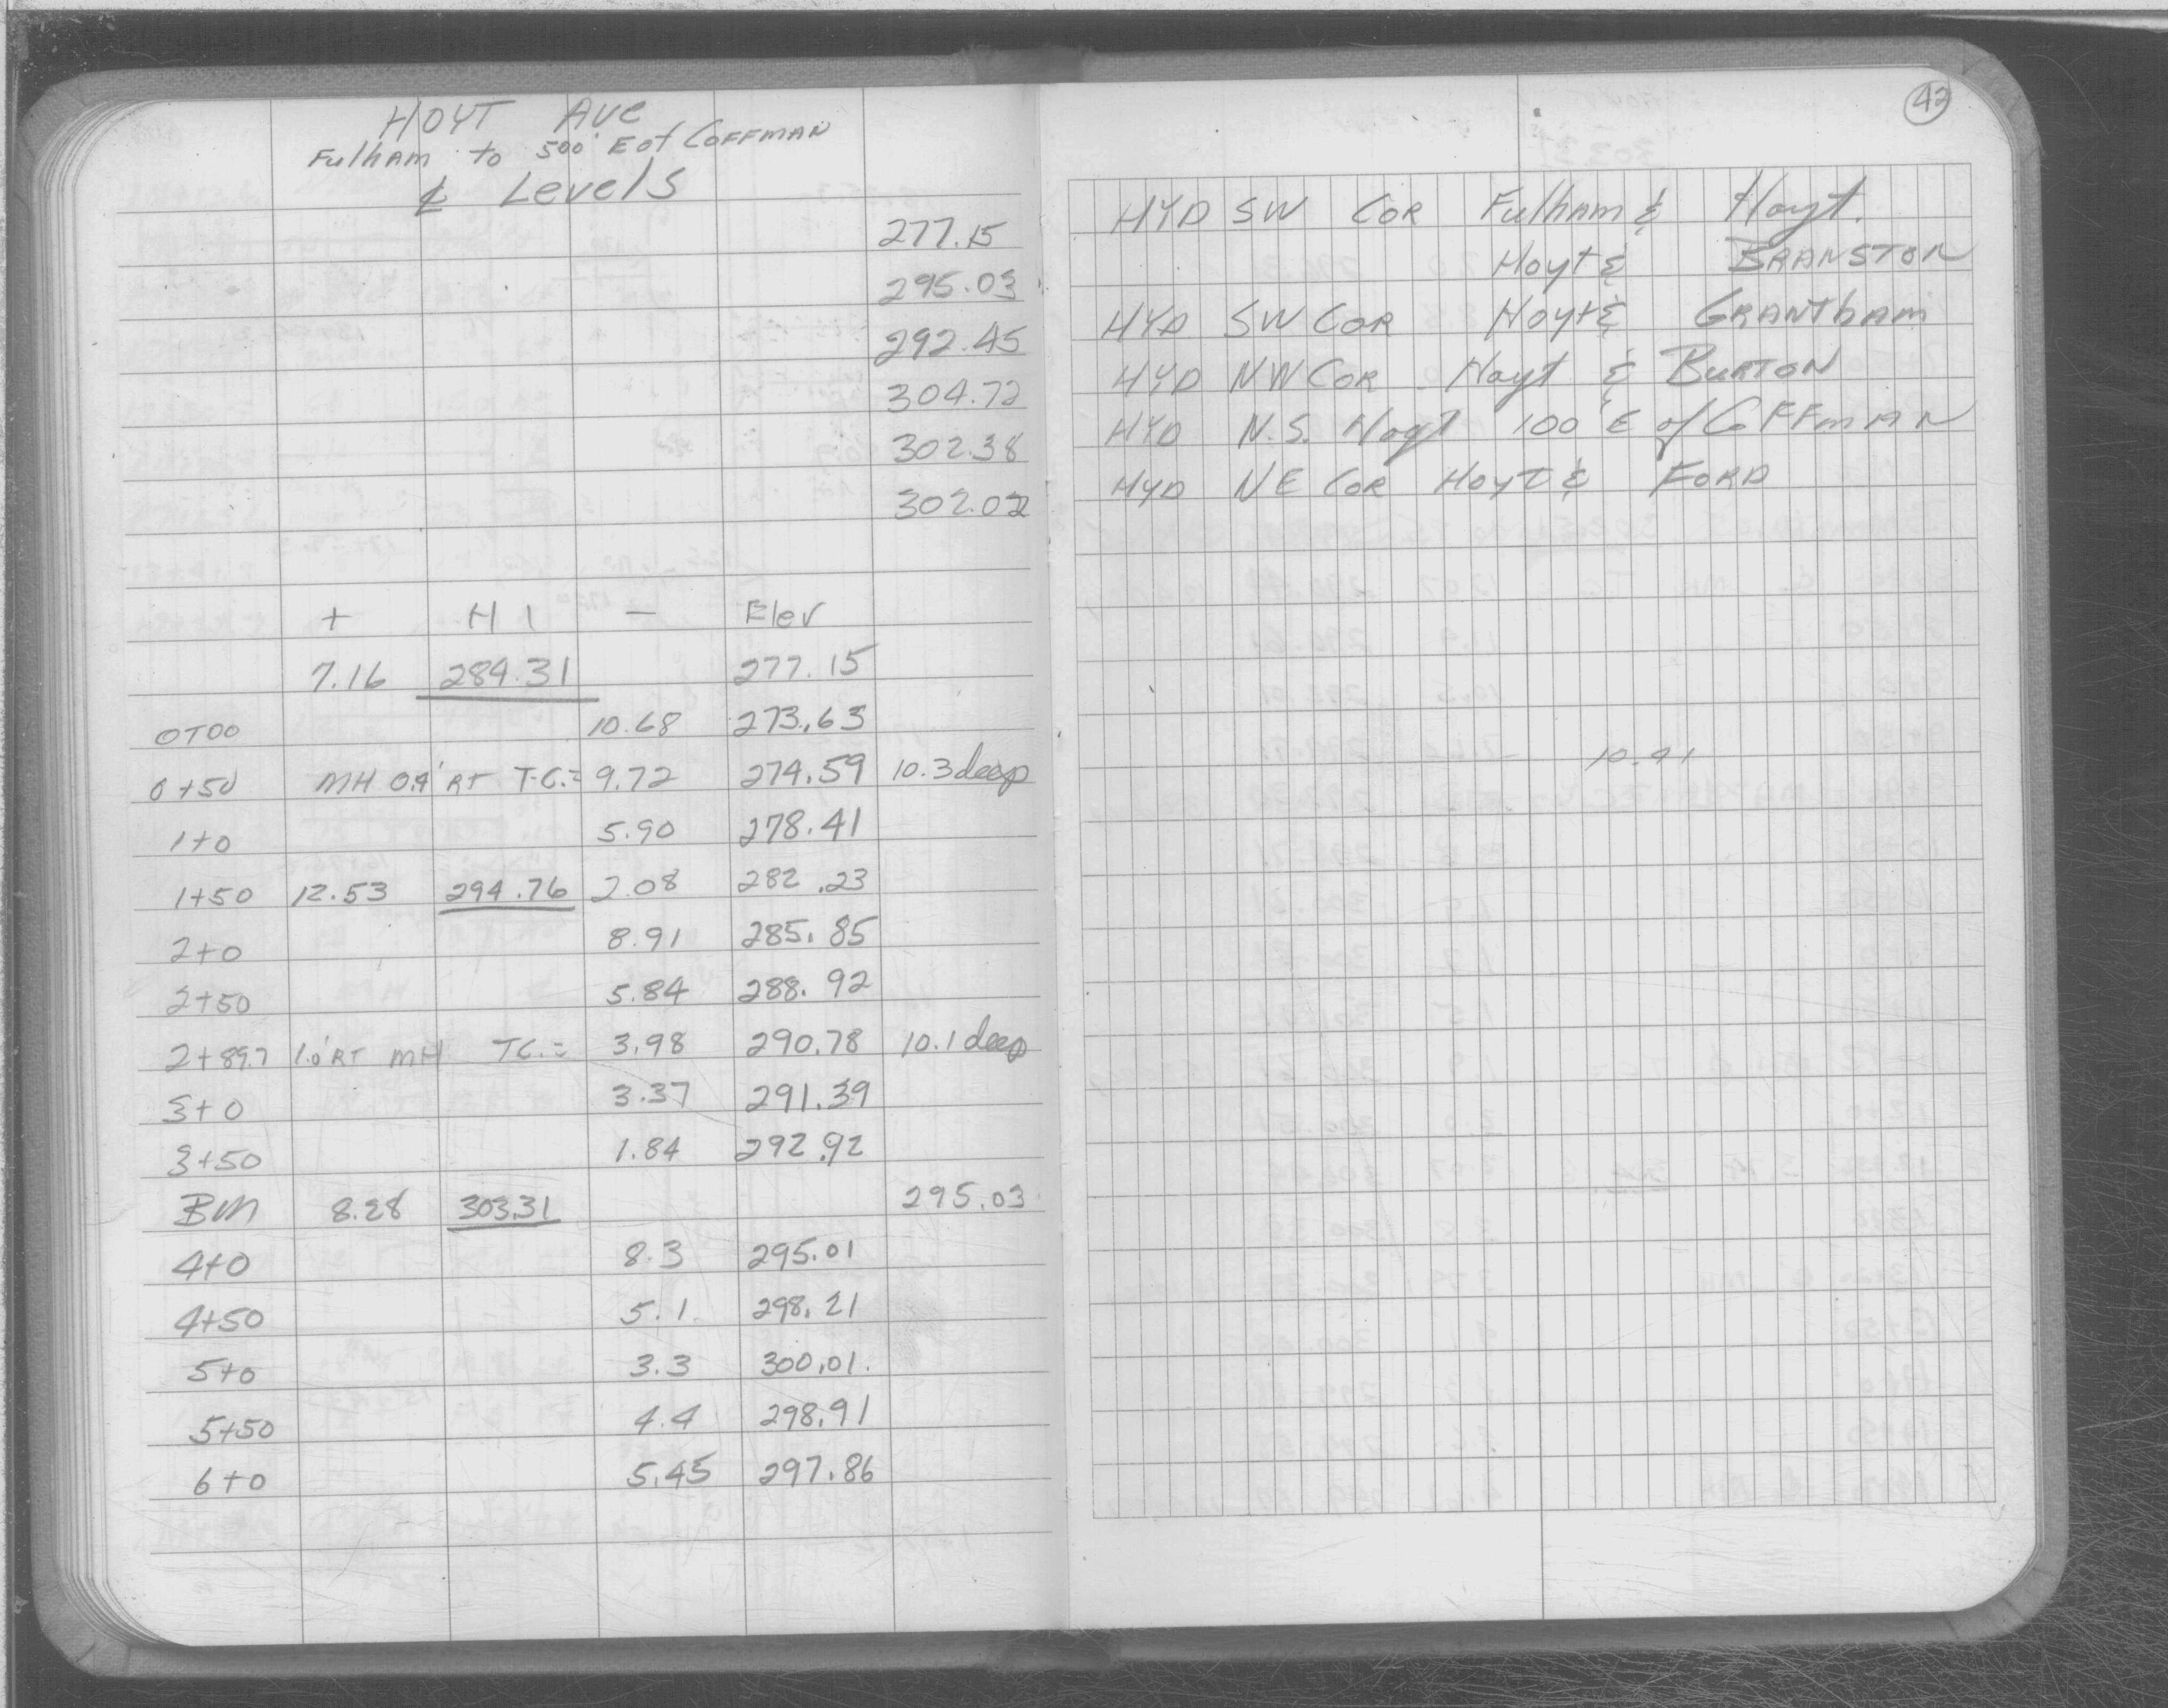 HOYT AVE
Fulham to 500' E of COFFMAN
℄ Levels
277.15 HYD SW COR Fulham & Hoyt.
295.03 Hoyt & BRANSTON
292.45 HYD SW COR Hoyt & GRANTHAM
304.72 HYD NW COR Hoyt & BURTON
302.38 HYD N.S. Hoyt 100 E of COFFMAN
302.02 HYD NE COR HOYT & FORD
+ HI − Elev
7.16 284.31 277.15
0+00 10.68 273.63
0+50 MH 0.9' RT T.C.= 9.72 274.59 10.3 deep
1+0 5.90 278.41
1+50 12.53 294.76 2.08 282.23
2+0 8.91 285.85
2+50 5.84 288.92
2+89.7 1.0' RT MH TC.= 3.98 290.78 10.1 deep
3+0 3.37 291.39
3+50 1.84 292.92
BM 8.28 303.31 295.03
4+0 8.3 295.01
4+50 5.1. 298.21
5+0 3.3 300.01.
5+50 4.4 298.91
6+0 5.45 297.86
42
10.91